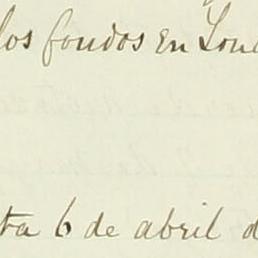 los fondos en Lond
ta 6 de abril d